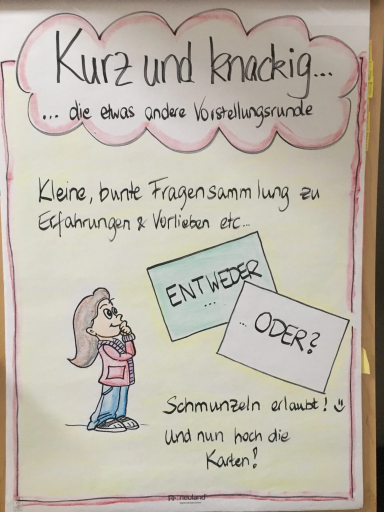 Kurz und knackig...
... die etwas andere Vorstellungsrunde
Kleine, bunte Fragensammlung zu
Erfahrungen & Vorlieben etc...
ENTWEDER
...
... ODER?
Schmunzeln erlaubt! ☺
Und nun hoch die
Karten!
neuland